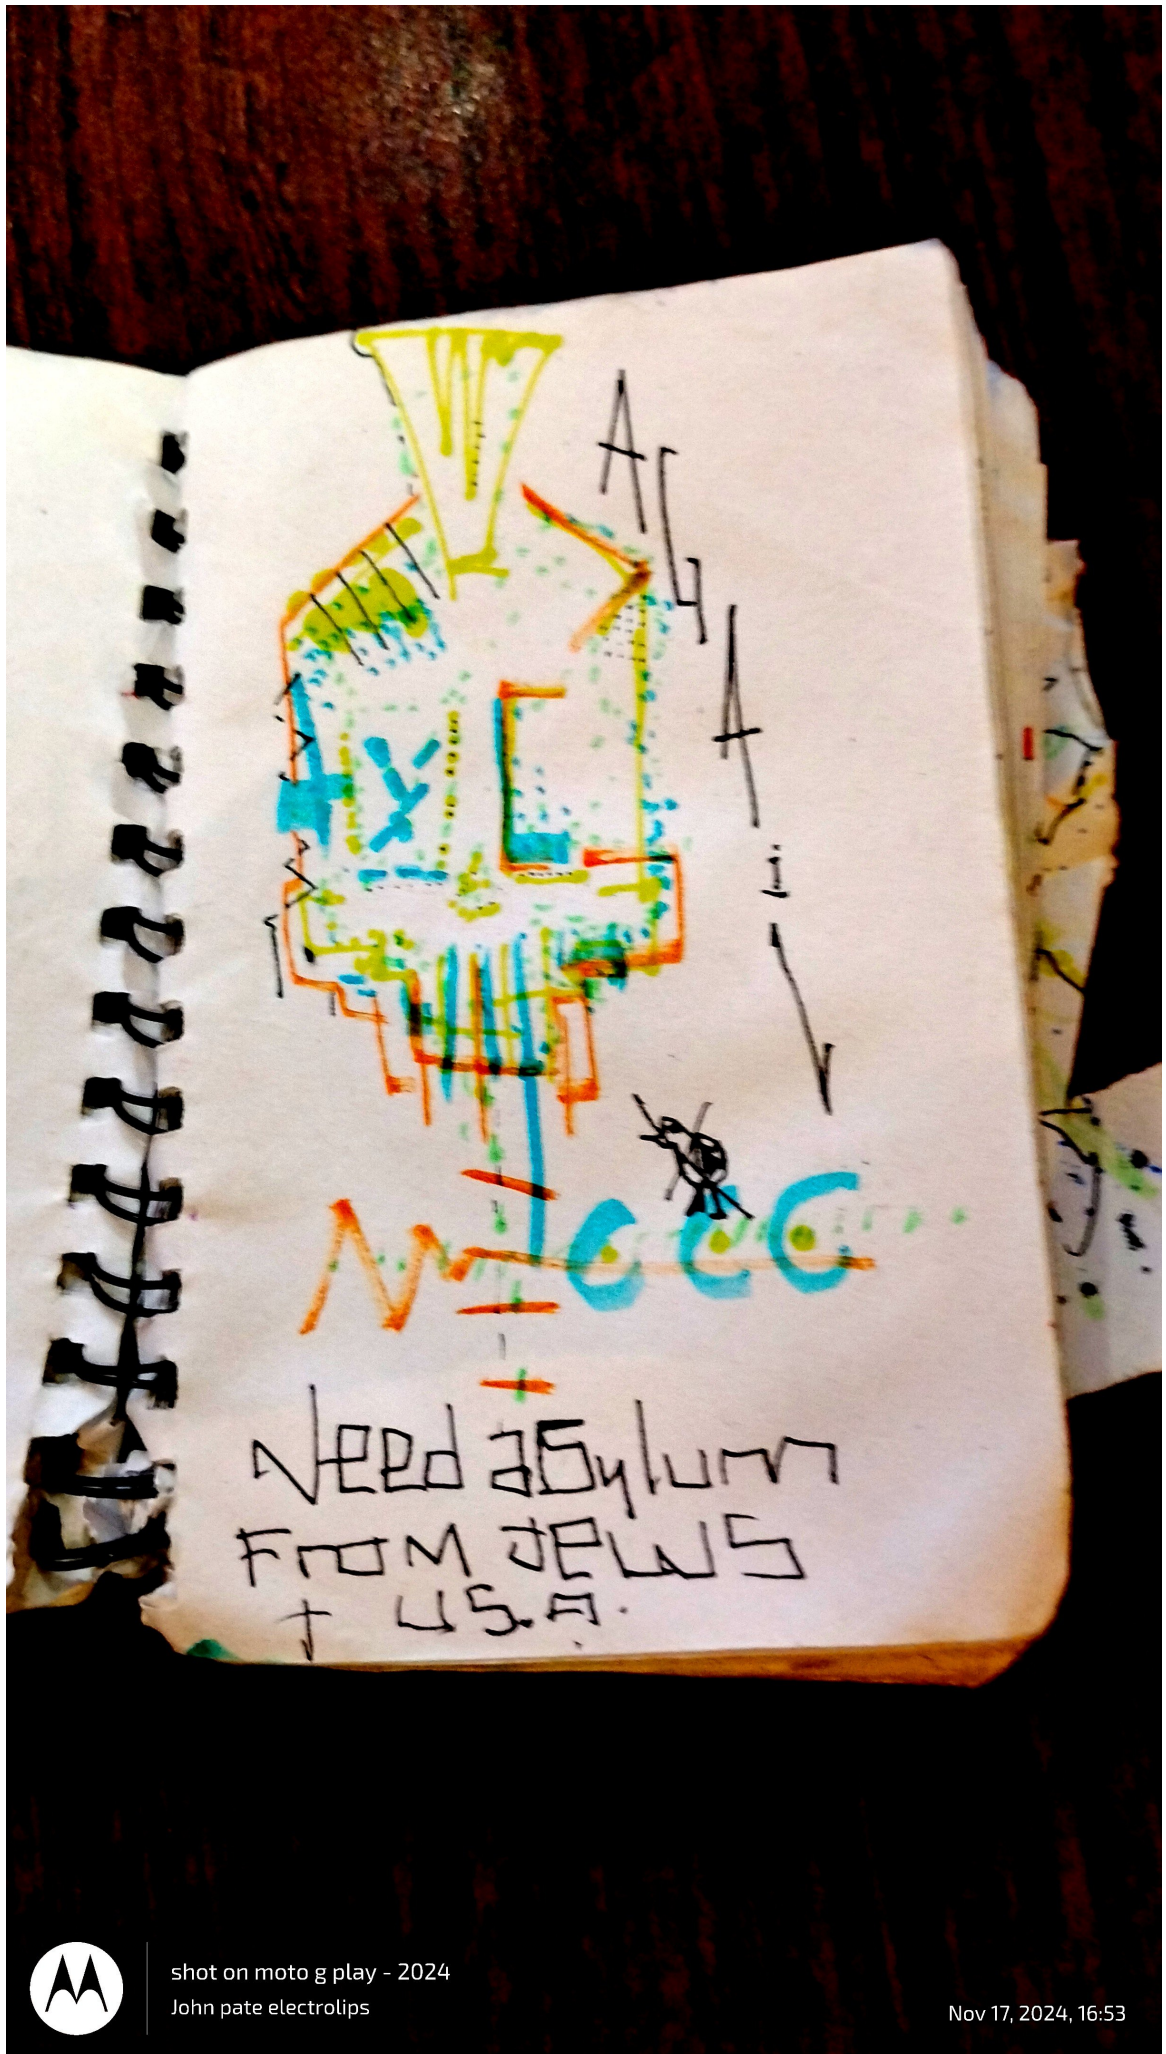 AGAiN
Need asylum
From Jews
+ U.S.A.
shot on moto g play - 2024
John pate electrolips
Nov 17, 2024, 16:53